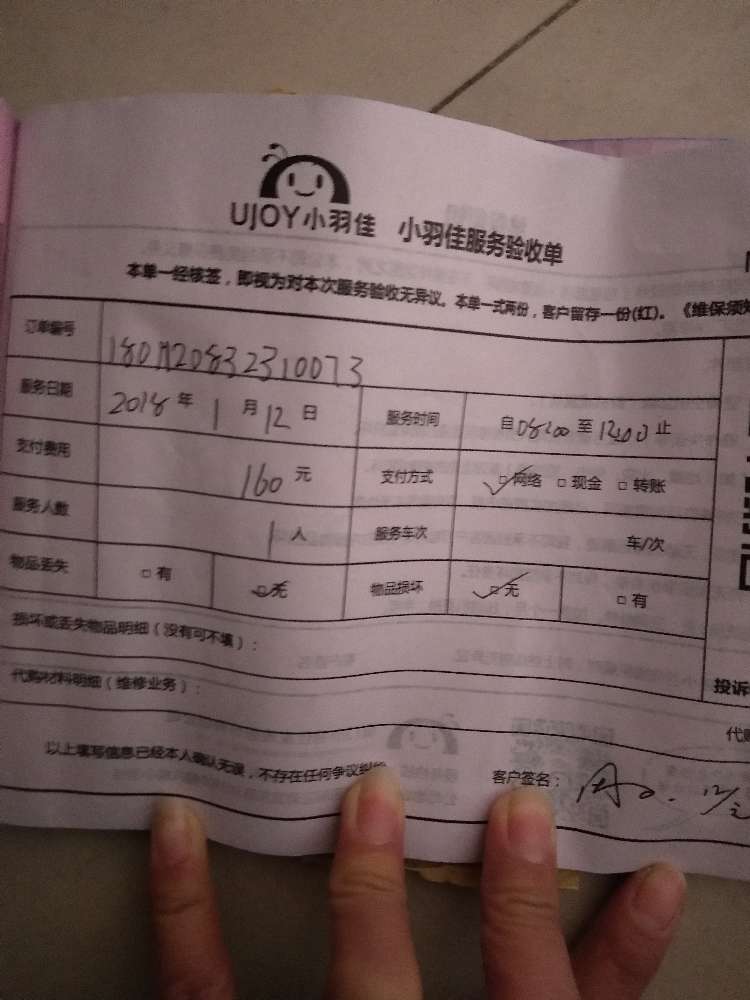 UJOY小羽佳 小羽佳服务验收单
本单一经核签，即视为对本次服务验收无异议。本单一式两份，客户留存一份(红)。《维保须知
订单编号
服务日期 2018年1月12日 服务时间 自08:00至12:00止
支付费用 160元 支付方式 ☑网络 □现金 □转账
服务人数 1人 服务车次 车/次
物品丢失 □有 ☑无 物品损坏 ☑无 □有
损坏或丢失物品明细（没有可不填）：
投诉
代购材料明细（维修业务）：
代购
以上填写信息已经本人确认无误，不存在任何争议纠纷
客户签名：